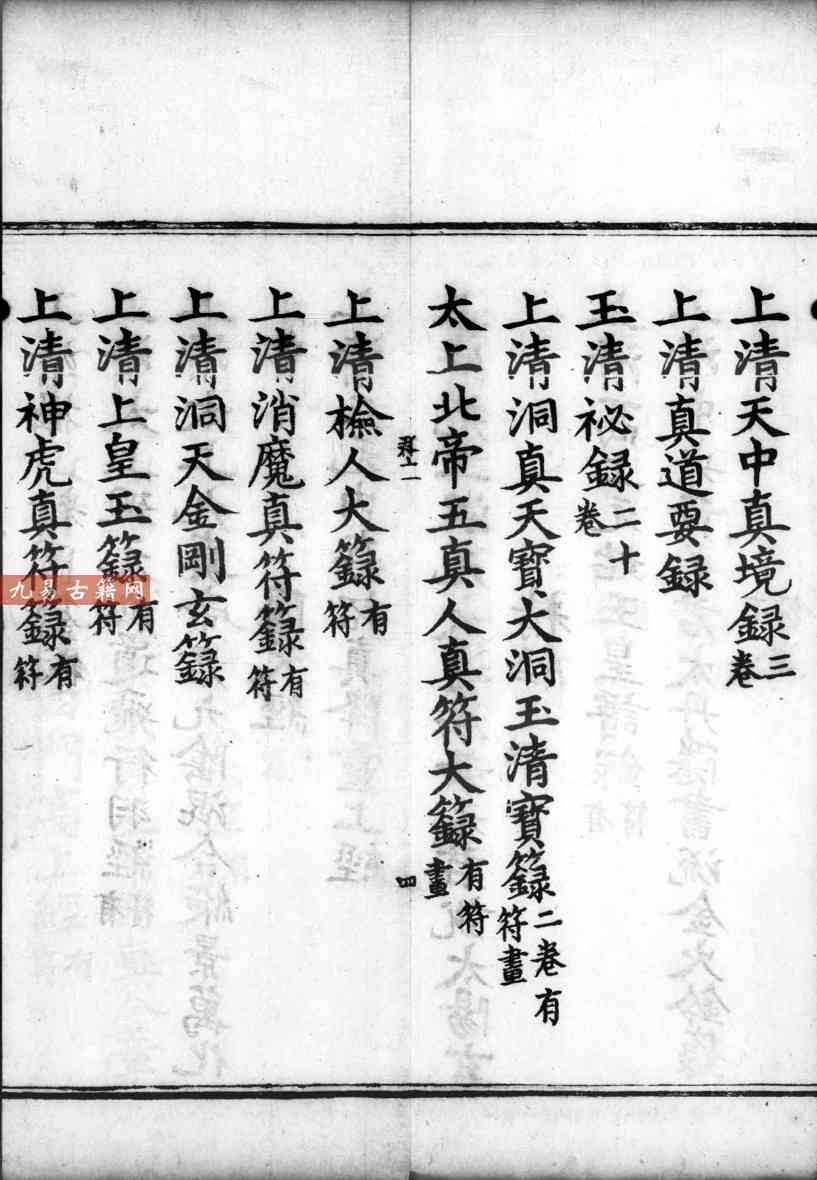 上清天中真境録三卷
上清真道要録
玉清祕録二十卷
上清洞真天寶大洞玉清寶籙二卷有符畫
太上北帝五真人真符大籙有符畫
四
上清檢人大籙有符
上清消魔真符籙有符
上清洞天金剛玄籙
上清上皇玉籙有符
上清神虎真符籙有符
九易古籍网